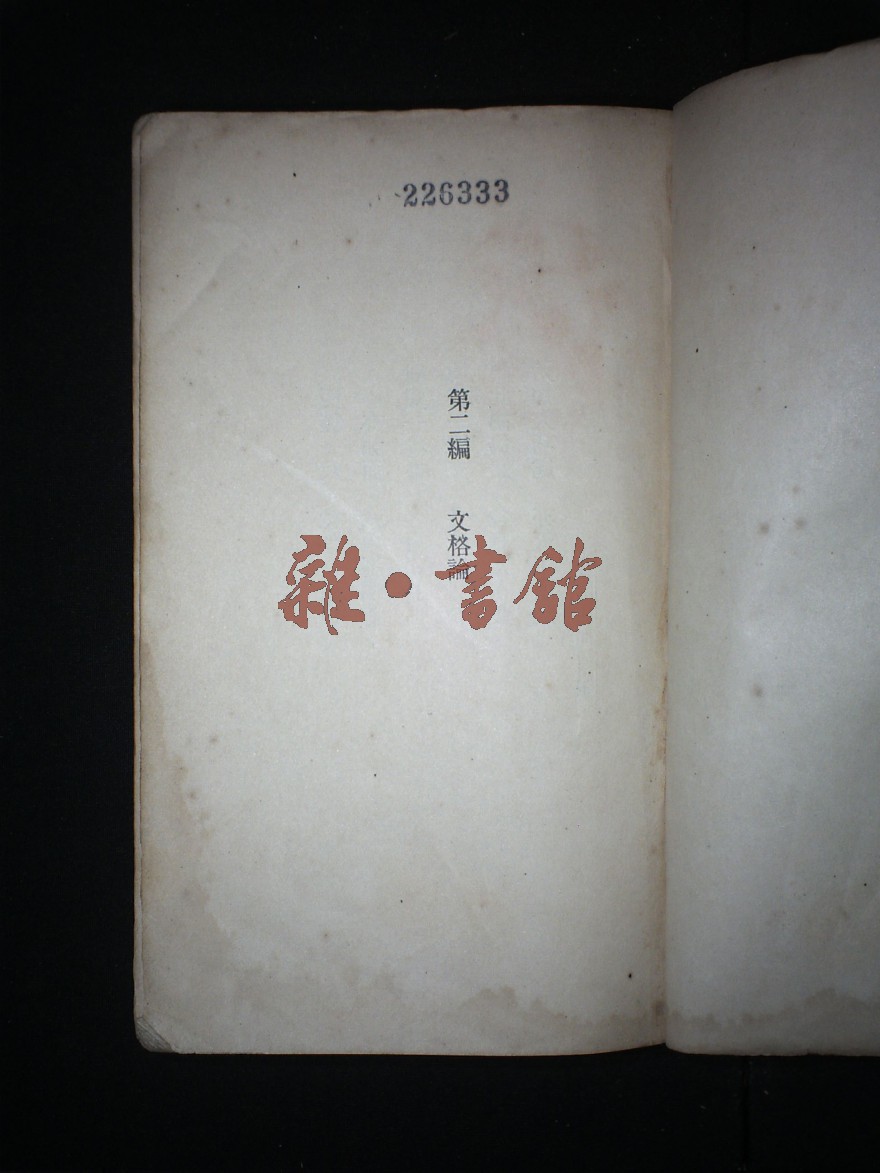 226333
第二編 文格論
雜·書館